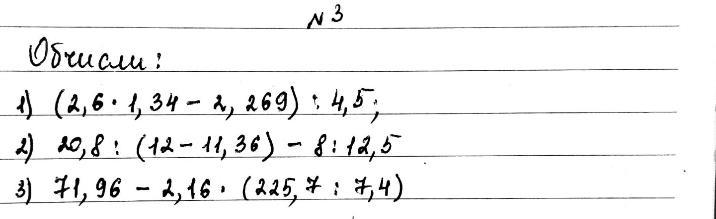 № 3
Обчисли:
1) (2,6 · 1,34 − 2,269) : 4,5;
2) 20,8 : (12 − 11,36) − 8 : 12,5
3) 71,96 − 2,16 · (225,7 : 7,4)